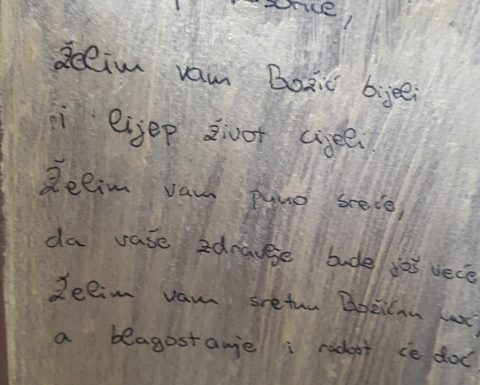 Želim vam Božić bijeli
i lijep život cijeli.
Želim vam puno sreće,
da vaše zdravlje bude još veće
Želim vam sretnu Božićnu noć,
a blagostanje i radost će doć